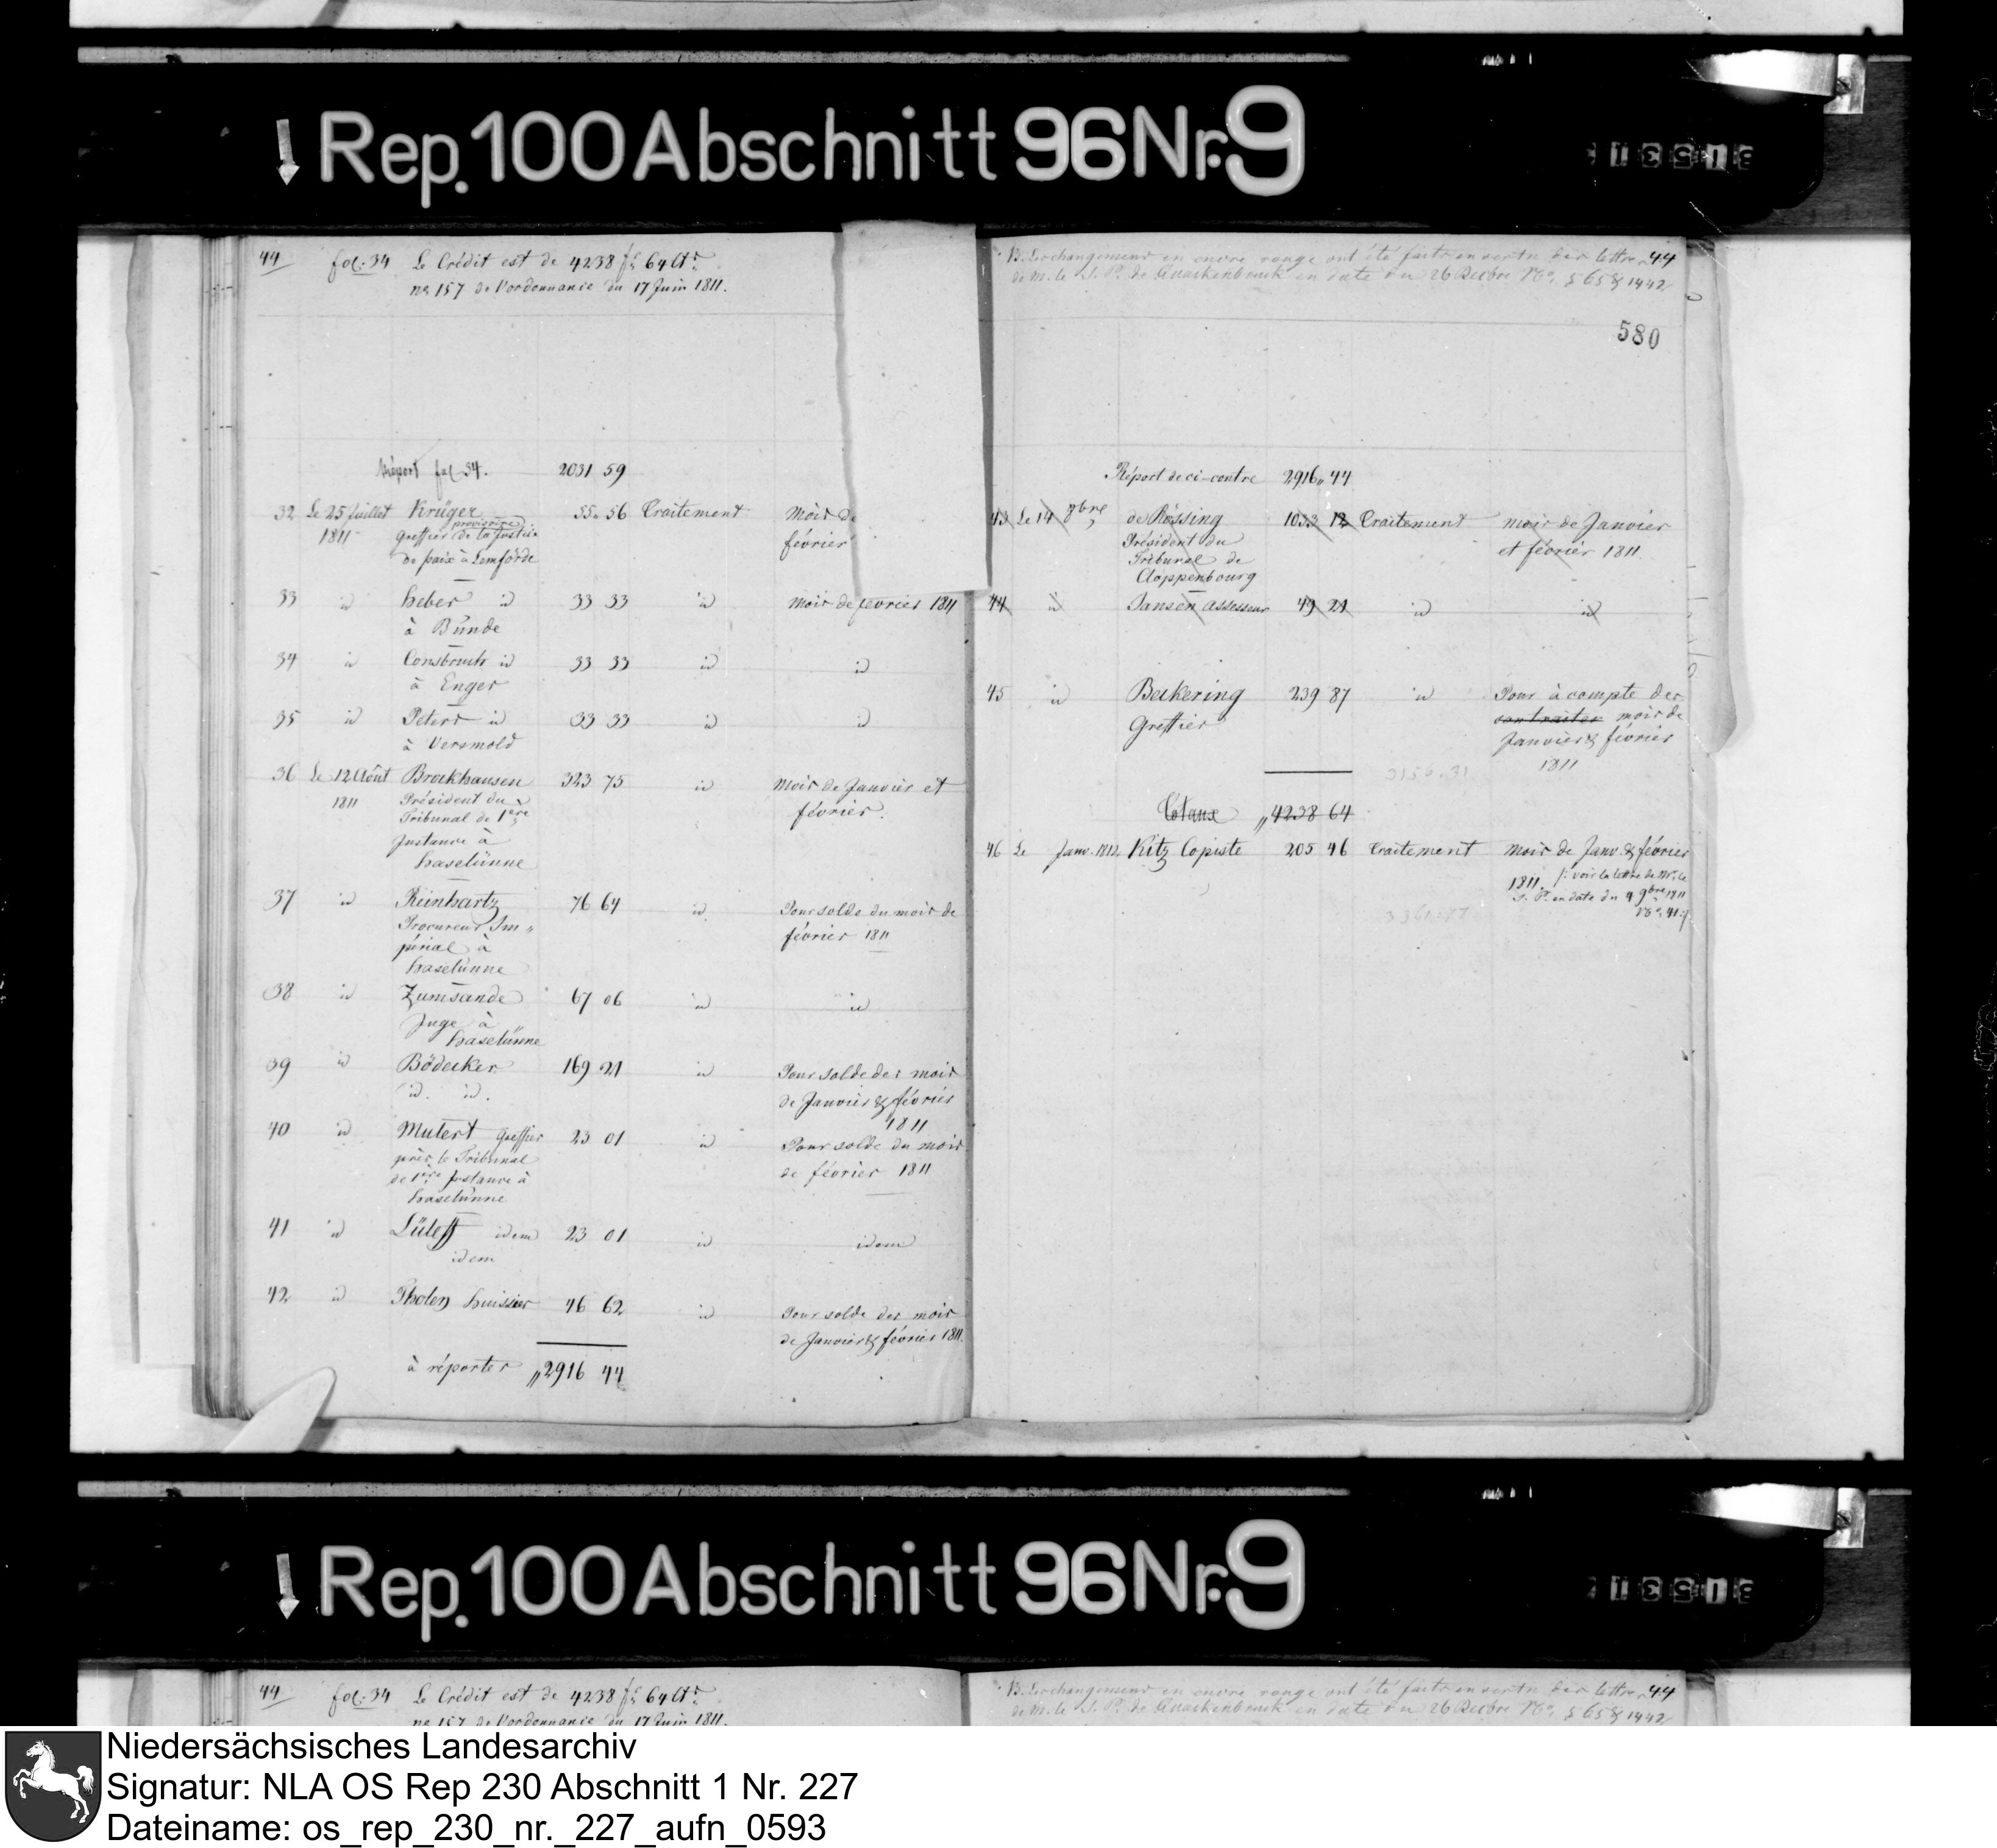 Rep. 100 Abschnitt 96 Nr. 9
44
fol. 34 Le Crédit est de 4238 fcs 64 Cts
no 157 de l'ordonnance du 17 Juin 1811.
Réport fol 34. 2031 59
32 Le 25 Juillet Krüger 55 56 Traitement Mois de
1811 Greffier provisoire de la Justice février
de paix à Lemförde
33 id Heber id 33 33 id Mois de fevrier 1811
à Bünde
34 id Consbruch id 33 33 id id
à Enger
35 id Peters id 33 33 id id
à Versmold
36 Le 12 Août Brockhausen 323 75 id Mois de Janvier et
1811 Président du février.
Tribunal de 1ère
Instance à
Haselünne
37 id Reinhartz 76 64 id Pour solde du mois de
Procureur Im„ février 1811
périal à
Haselünne
38 id Zumsande 67 06 id id
Juge à
Haselünne
39 id Bödecker 169 21 id Pour solde des mois
id. id. de Janvier & février
1811
40 id Mutert Greffier 23 01 id Pour solde du mois
près le Tribunal de février 1811
de 1ère Instance à
Haselünne
41 id idem 23 01 id idem
idem
42 id Tholen huissier 46 62 id Pour solde des mois
de Janvier & février 1811.
à réporter „2916 44
B. Les changemens en encre rouge ont été faits en vertu des lettres 44
de M. le S. P. de Quackenbruck en date du 26 Decbre No. 565 & 1442
580
Réport de ci-contre 2916„44
43 Le 14 de Rössing 1033 12 Traitement mois de Janvier
Président du et février 1811.
Tribunal de
Cloppenbourg
44 id Jansen assesseur 49 21 id id
45 id Beckering 239 87 id Pour à compte des
Greffier mois de
Janvier & février
1811
Totaux „4238 64
46 Le Janv. 1812. Kitz Copiste 205 46 Traitement mois de Janv. & février
1811. /: voir la lettre de Mr. le
S. P. en date du 4 9bre 1811
No. 41 :/
Rep. 100 Abschnitt 96 Nr. 9
44
fol. 34 Le Crédit est de 4238 fcs 64 Cts
no 157 de l'ordonnance du 17 Juin 1811.
B. Les changemens en encre rouge ont été faits en vertu des lettres 44
de M. le S. P. de Quackenbruck en date du 26 Decbre No. 565 & 1442
Niedersächsisches Landesarchiv
Signatur: NLA OS Rep 230 Abschnitt 1 Nr. 227
Dateiname: os_rep_230_nr._227_aufn_0593